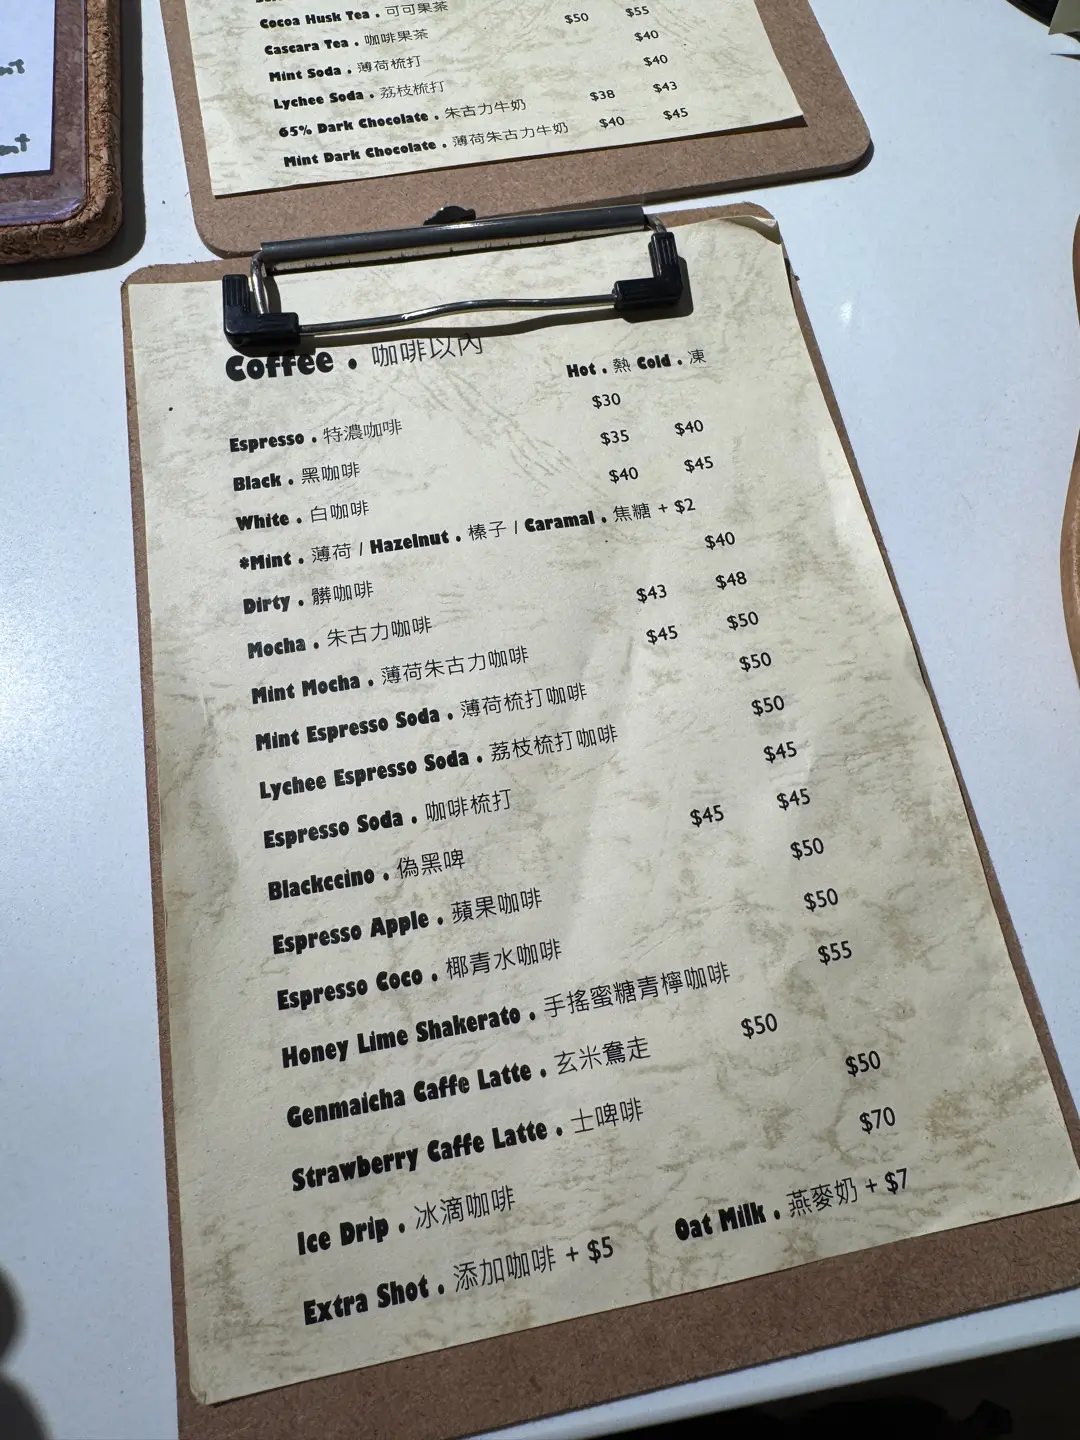 Cocoa Husk Tea . 可可果茶
Cascara Tea . 咖啡果茶 $50 $55
Mint Soda . 薄荷梳打 $40
Lychee Soda . 荔枝梳打 $40
65% Dark Chocolate . 朱古力牛奶 $38 $43
Mint Dark Chocolate . 薄荷朱古力牛奶 $40 $45
Coffee . 咖啡以內
Hot . 熱 Cold . 凍
Espresso . 特濃咖啡 $30
Black . 黑咖啡 $35 $40
White . 白咖啡 $40 $45
*Mint . 薄荷 / Hazelnut . 榛子 / Caramal . 焦糖 + $2
Dirty . 髒咖啡 $40
Mocha . 朱古力咖啡 $43 $48
Mint Mocha . 薄荷朱古力咖啡 $45 $50
Mint Espresso Soda . 薄荷梳打咖啡 $50
Lychee Espresso Soda . 荔枝梳打咖啡 $50
Espresso Soda . 咖啡梳打 $45
Blackccino . 偽黑啤 $45 $45
Espresso Apple . 蘋果咖啡 $50
Espresso Coco . 椰青水咖啡 $50
Honey Lime Shakerato . 手搖蜜糖青檸咖啡 $55
Genmaicha Caffe Latte . 玄米鴦走 $50
Strawberry Caffe Latte . 士啤啡 $50
Ice Drip . 冰滴咖啡 $70
Extra Shot . 添加咖啡 + $5 Oat Milk . 燕麥奶 + $7